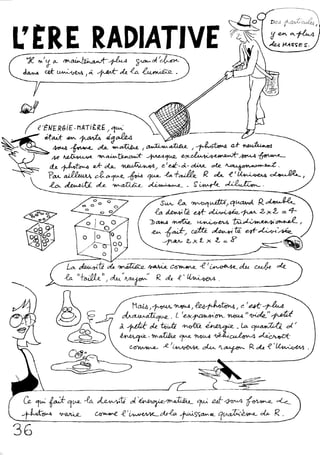 L'ÈRE RADIATIVE
Des particules,
y en a plus
des MASSES.
Il n'y a maintenant plus grand'chose
dans cet univers, à part de la lumière.
L'ÉNERGIE-MATIÈRE, qui
était en parts égales
sous forme de matière, antimatière, photons et neutrinos
se retrouve maintenant presque exclusivement sous forme
de photons et de neutrinos, c'est-à-dire de rayonnement.
Par ailleurs chaque fois que la taille R de l'Univers double,
la densité de matière diminue. Simple dilution.
Sur la moquette, quand R double,
la densité est divisée par 2 x 2 = 4.
Dans notre univers tridimensionnel,
en fait, cette densité est divisée
par 2 x 2 x 2 = 8
La densité de matière varie comme l'inverse du cube de
la "taille", du rayon R de l'Univers.
Mais, pour nous, les photons, c'est plus
dramatique. L'expansion nous "vide" petit
à petit de toute notre énergie. La quantité d'
énergie-matière que nous véhiculons décroît
comme l'inverse du rayon R de l'Univers
Ce qui fait que la densité d'énergie-matière qui est sous forme de
photons varie comme l'inverse de la puissance quatrième de R.
36